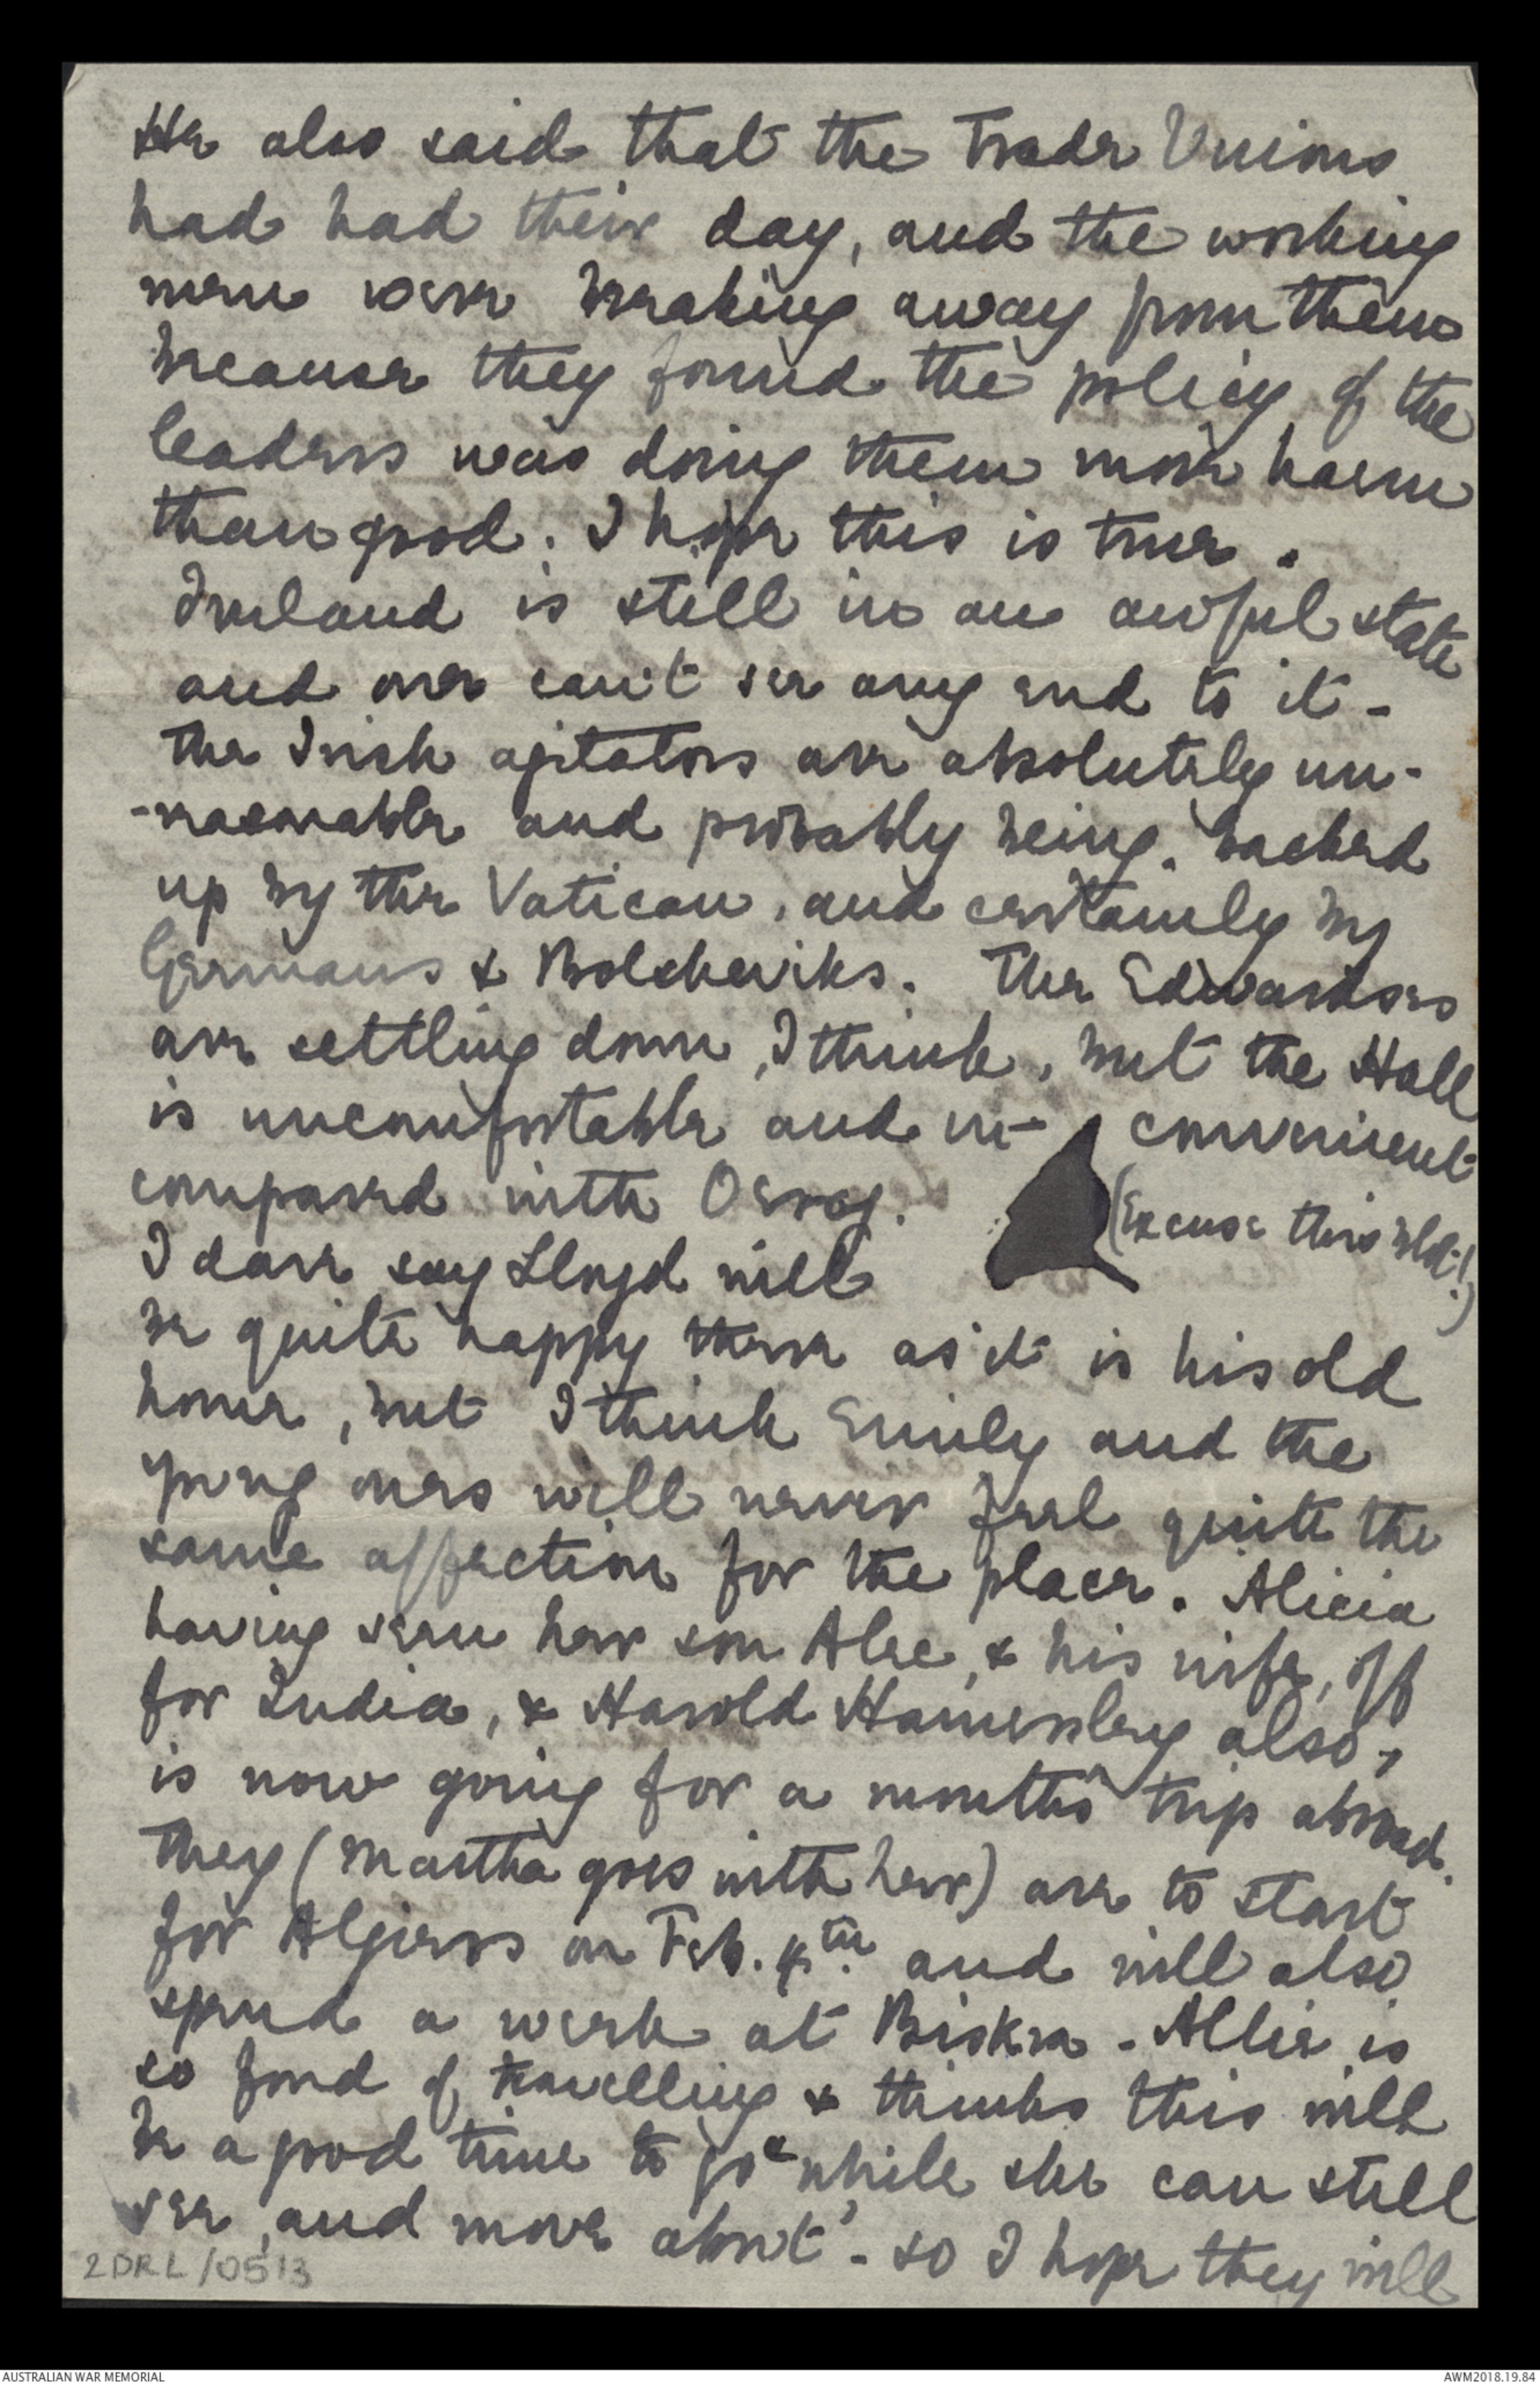 He also said that the Trade Unions
had had their day, and the working
men were breaking away from them
because they found the policy of the
leaders was doing them more harm
than good. I hope this is true.
Ireland is still in an awful state
and one can't see any end to it -
the Irish agitators are absolutely un-
-reasonable and probably being backed
up by the Vatican, and certainly by
Germans & Bolsheviks. The Edwardses
are settling down, I think, but the Hall
is uncomfortable and in- convenient
compared with
(Excuse this blot!)
I dare say Lloyd will
be quite happy there as it is his old
home, but I think Emily and the
young ones will never feel quite the
same affection for the place. Alicia
having seen her son Alec, & his wife, off
for India, & Harold Hamersley also,
is now going for a months trip abroad.
They (Martha goes with her) are to start
for Algiers on Feb. 4th. and will also
spend a week at Biskra - Allie is
so fond of travelling & thinks this will
be a good time to go "while she can still
see, and move about". so I hope they will
2DRL/0513
AUSTRALIAN WAR MEMORIAL
AWM2018.19.84